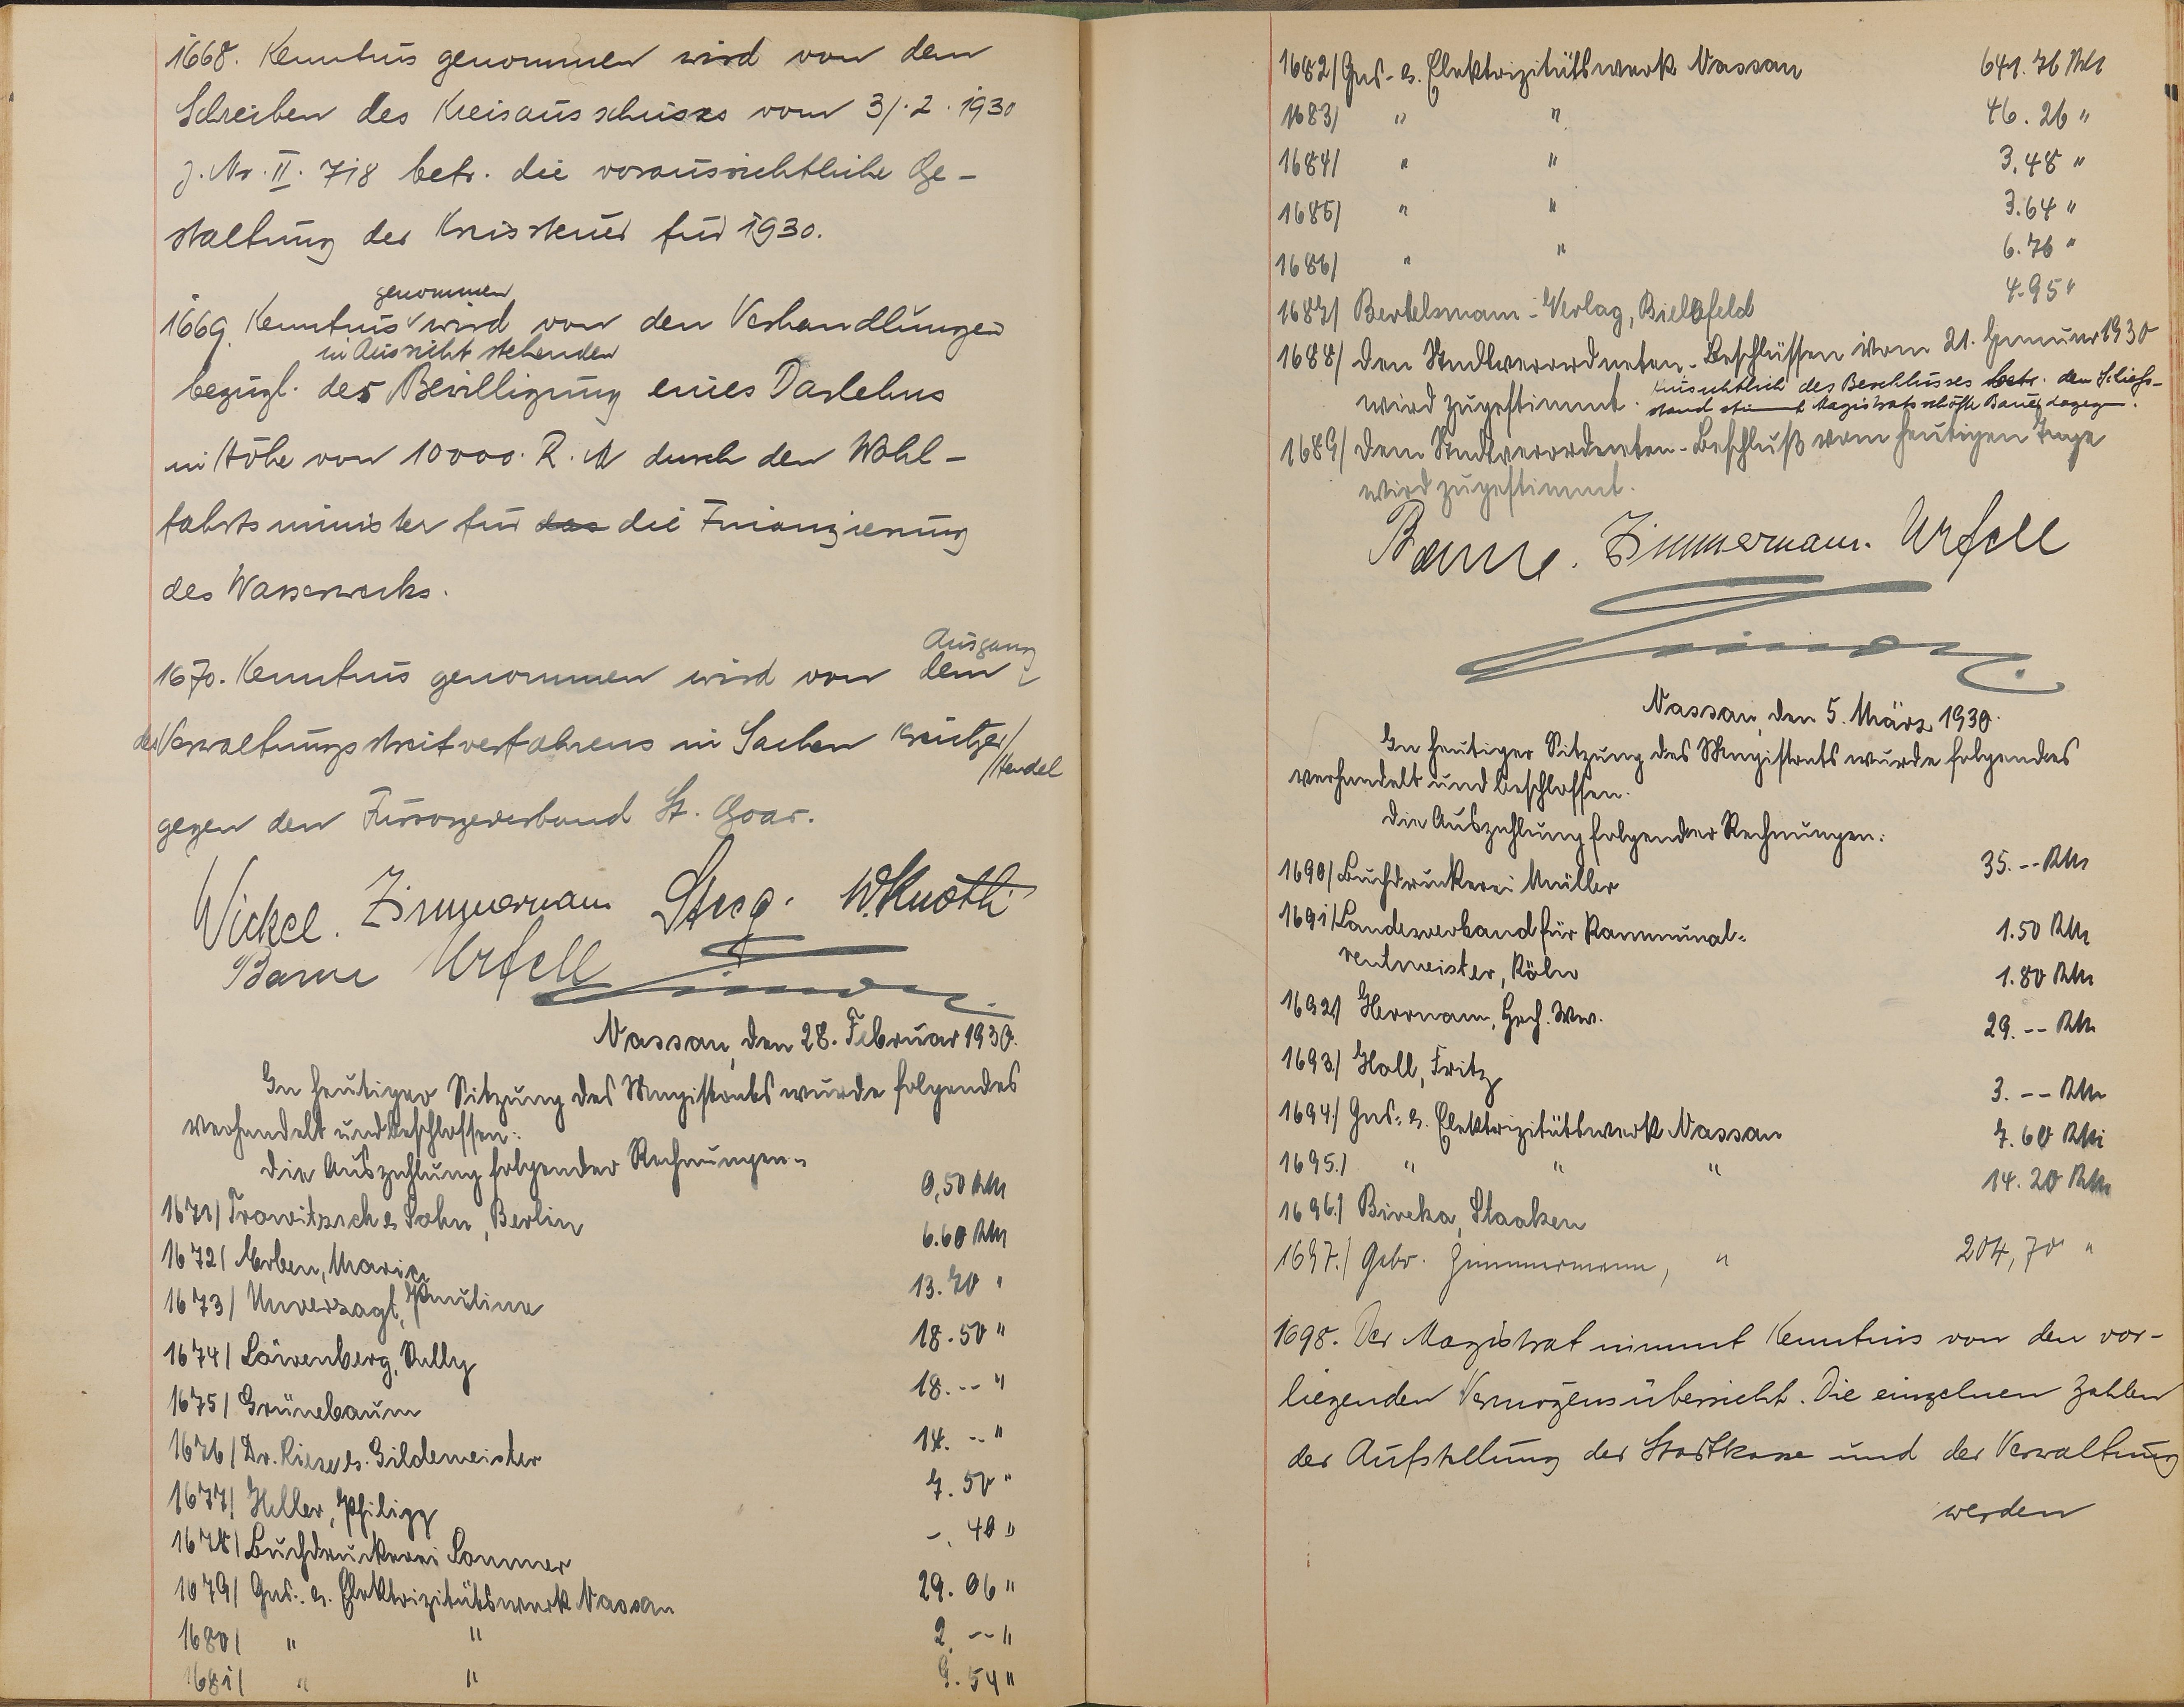 1668. Kenntnis genommen wird von dem
Schreiben des Kreisausschusses vom 3/. 2. 1930
J. Nr. II. 718 betr. die voraussichtliche Ge-
staltung der Kreissteuer für 1930.
genommen
1669. Kenntnis wird von den Verhandlungen
in Aussicht stehenden
bezügl. der Bewilligung eines Darlehns
in Höhe von 10000. R. M durch den Wohl-
fahrtsminister für das die Finanzierung
des Wasserwerks.
Ausgang
1670. Kenntnis genommen wird von dem
des Verwaltungsstreitverfahrens in Sachen Kreutzer/
/Hendel
gegen den Fürsorgeverband St. Goar.
Wickel. Zimmermann W. Knoth
Urfell
Nassau, den 28. Februar 1930.
In heutiger Sitzung des Magistrats wurde folgendes
verhandelt und beschlossen:
Die Auszahlung folgender Rechnungen:
1671/ Trowitzsch & Sohn, Berlin 0,50 RM
1672/ Erben, Marie 6.60 RM
1673/ Unverzagt, Pauline 13.70 "
1674/ Löwenberg, Sally 18.50 "
1675/ Grünebaum 18.-- "
1676/ Dr. Riese & Gildemeister 14. -- "
1677/ Heller, Philipp 7.50 "
1678/ Buchdruckerei Sommer -. 40 "
1679/ Gas- & Elektrizitätswerk Nassau 29.06 "
1680/ " " 2. -- "
1681/ " " 9.54 "
1682/ Gas- & Elektrizitätswerk Nassau 641.76 RM
1683/ " " 46.26 "
1684/ " " 3.48 "
1685/ " " 3.64 "
1686/ " " 6.76 "
1687/ Bertelsmann-Verlag, Bielefeld 4.95 "
1688/ Den Stadtverordneten-Beschlüssen vom 21. Januar 1930
wird zugestimmt. Hinsichtlich des Beschlusses betr. den Schieß-
stand stimmt Magistratsschöffe Bauer dagegen.
1689/ Dem Stadtverordneten-Beschluß vom heutigen Tage
wird zugestimmt.
Zimmermann. Urfell
Nassau, den 5. März 1930.
In heutiger Sitzung des Magistrats wurde folgendes
verhandelt und beschlossen.
Die Auszahlung folgender Rechnungen:
1690/ Buchdruckerei Müller 35.-- RM
1691/ Landesverband für Kommunal-
rentmeister, Köln 1.50 RM
1692/ Herrmann, Hch. Ww. 1.80 RM
1693/ Holl, Fritz 29.-- RM
1694/ Gas- & Elektrizitätswerk Nassau 3.-- RM
1695./ " " " 7.60 RM
1696./ Biveka, Staaken 14.20 RM
1697./ Gebr. Zimmermann, " 204,70 "
1698. Der Magistrat nimmt Kenntnis von den vor-
liegenden Vermögensübersicht. Die einzelnen Zahlen
der Aufstellung der Stadtkasse und der Verwaltung
werden